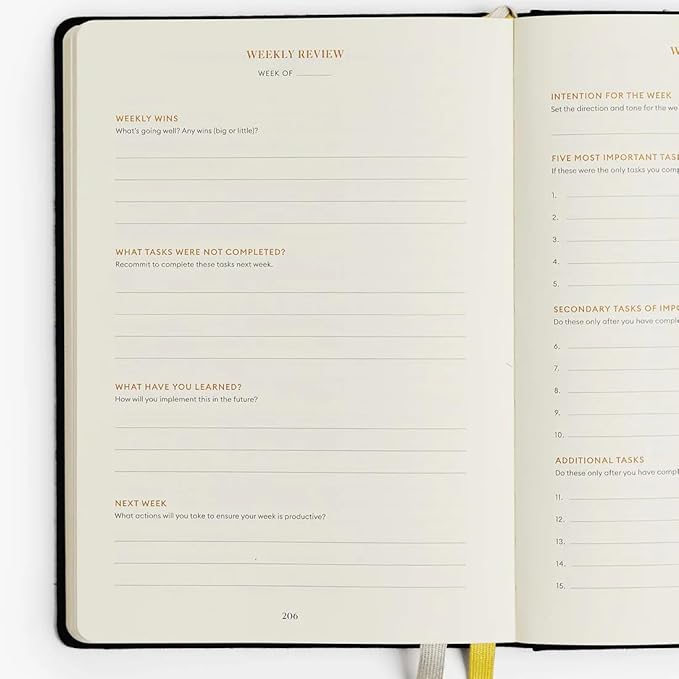 WEEKLY REVIEW
WEEK OF
WEEKLY WINS
What's going well? Any wins (big or little)?
WHAT TASKS WERE NOT COMPLETED?
Recommit to complete these tasks next week.
WHAT HAVE YOU LEARNED?
How will you implement this in the future?
NEXT WEEK
What actions will you take to ensure your week is productive?
206
INTENTION FOR THE WEEK
Set the direction and tone for the we
FIVE MOST IMPORTANT TAS
If these were the only tasks you com
1.
2.
3.
4.
5.
SECONDARY TASKS OF IMP
Do these only after you have comple
6.
7.
8.
9.
10.
ADDITIONAL TASKS
Do these only after you have compl
11.
12.
13.
14.
15.